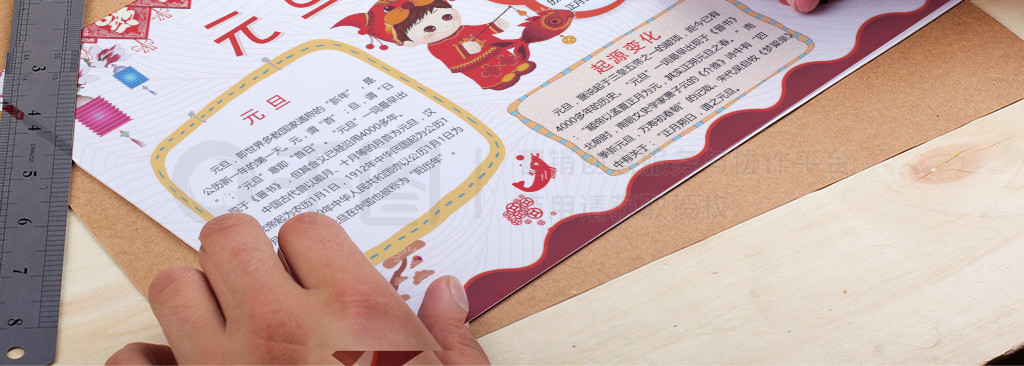 元旦
元旦
元旦，即世界多数国家通称的“新年”，是
公历新年的第一天。元，谓“首”；旦，谓“日
”；“元旦”意即“首日”。“元旦”一词最早出
现于《晋书》，但其含义已经沿用4000多年。
中国古代曾以腊月、十月等的月首为元旦，汉
武帝起为农历1月1日，1912年中华民国起为公历1
年中华人民共和国亦以公历1月1日为
旦在中国也被称为“阳历年”。
起源变化
元旦，据说起于三皇五帝之一的颛顼，距今已有
4000多年的历史。“元旦”一词最早出现于《晋书》
：“颛帝以孟夏正月为元，其实正朔元旦之春。”南
北朝时，南朝文史学家萧子云的《介雅》诗中有“四
季新元旦，万寿初春朝”的记载。宋代吴自牧《梦粱录》
中有关于：“正月朔日，谓之元旦，
3
4
5
6
7
8